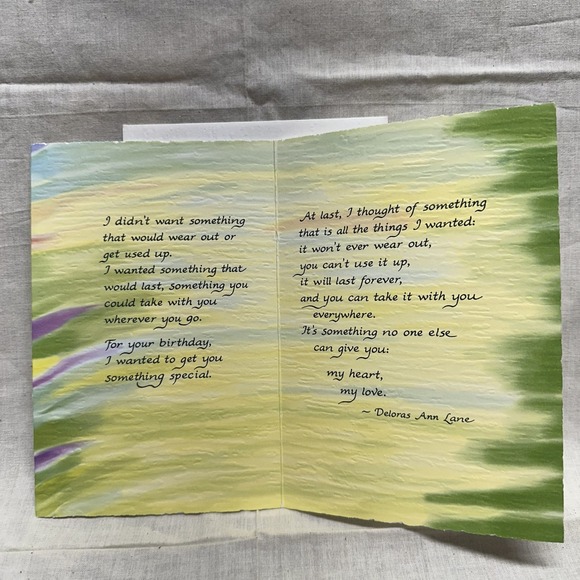 I didn't want something
that would wear out or
get used up.
I wanted something that
would last, something you
could take with you
wherever you go.
For your birthday,
I wanted to get you
something special.
At last, I thought of something
that is all the things I wanted:
it won't ever wear out,
you can't use it up,
it will last forever,
and you can take it with you
everywhere.
It's something no one else
can give you:
my heart,
my love.
~ Deloras Ann Lane